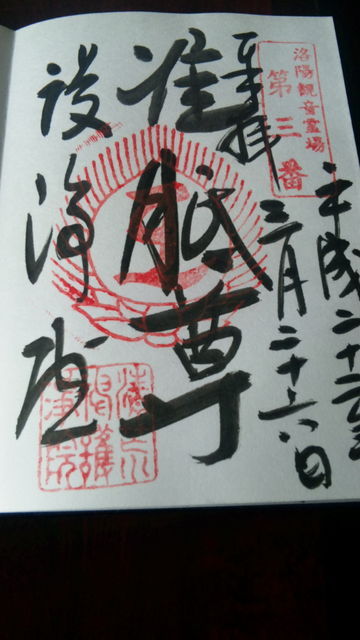 洛陽観音霊場
第三番
奉拝
平成二十
三月二十六日
准胝尊
護浄院